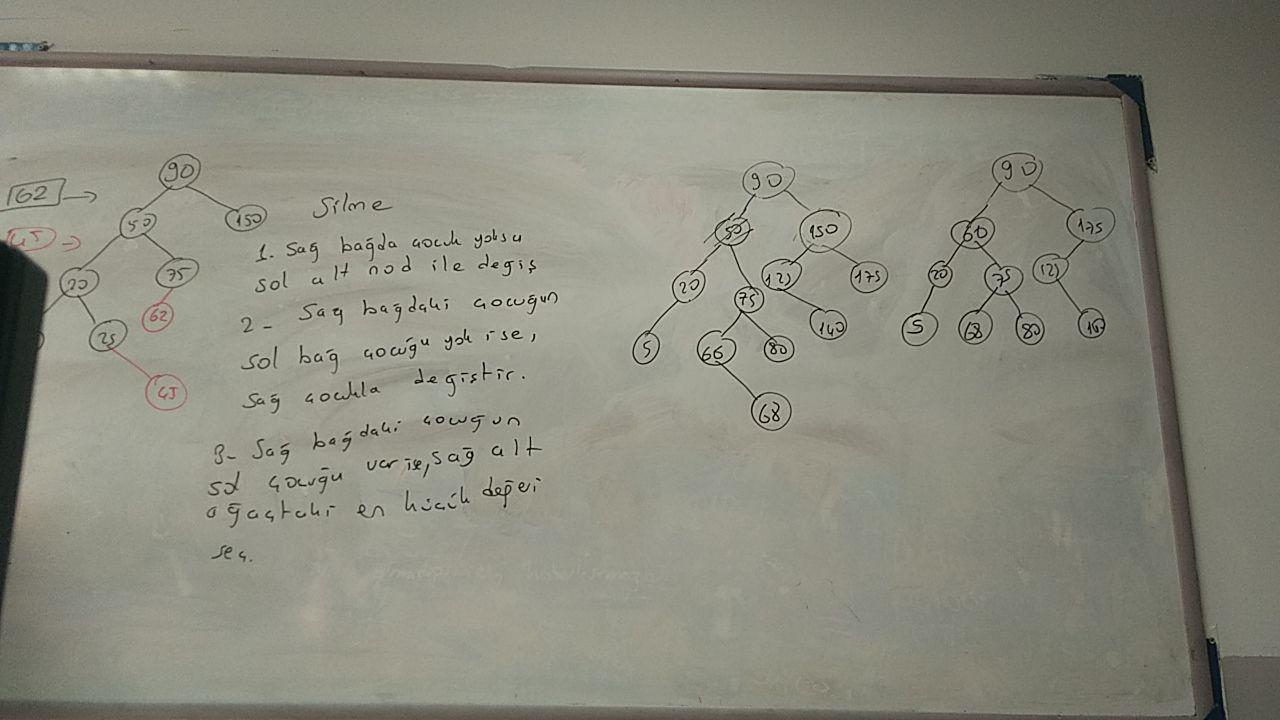 62
45
90
50
150
20
75
62
25
45
Silme
1. Sağ bağda çocuk yoksa
sol alt nod ile değiş
2 - Sağ bağdaki çocuğun
sol bağ çocuğu yok ise,
sağ çocukla değiştir.
3- Sağ bağdaki çocuğun
sol çocuğu var ise, sağ alt
ağaçtaki en küçük değeri
seç.
90
50
150
20
75
175
5
66
80
140
68
90
175
20
75
5
68
80